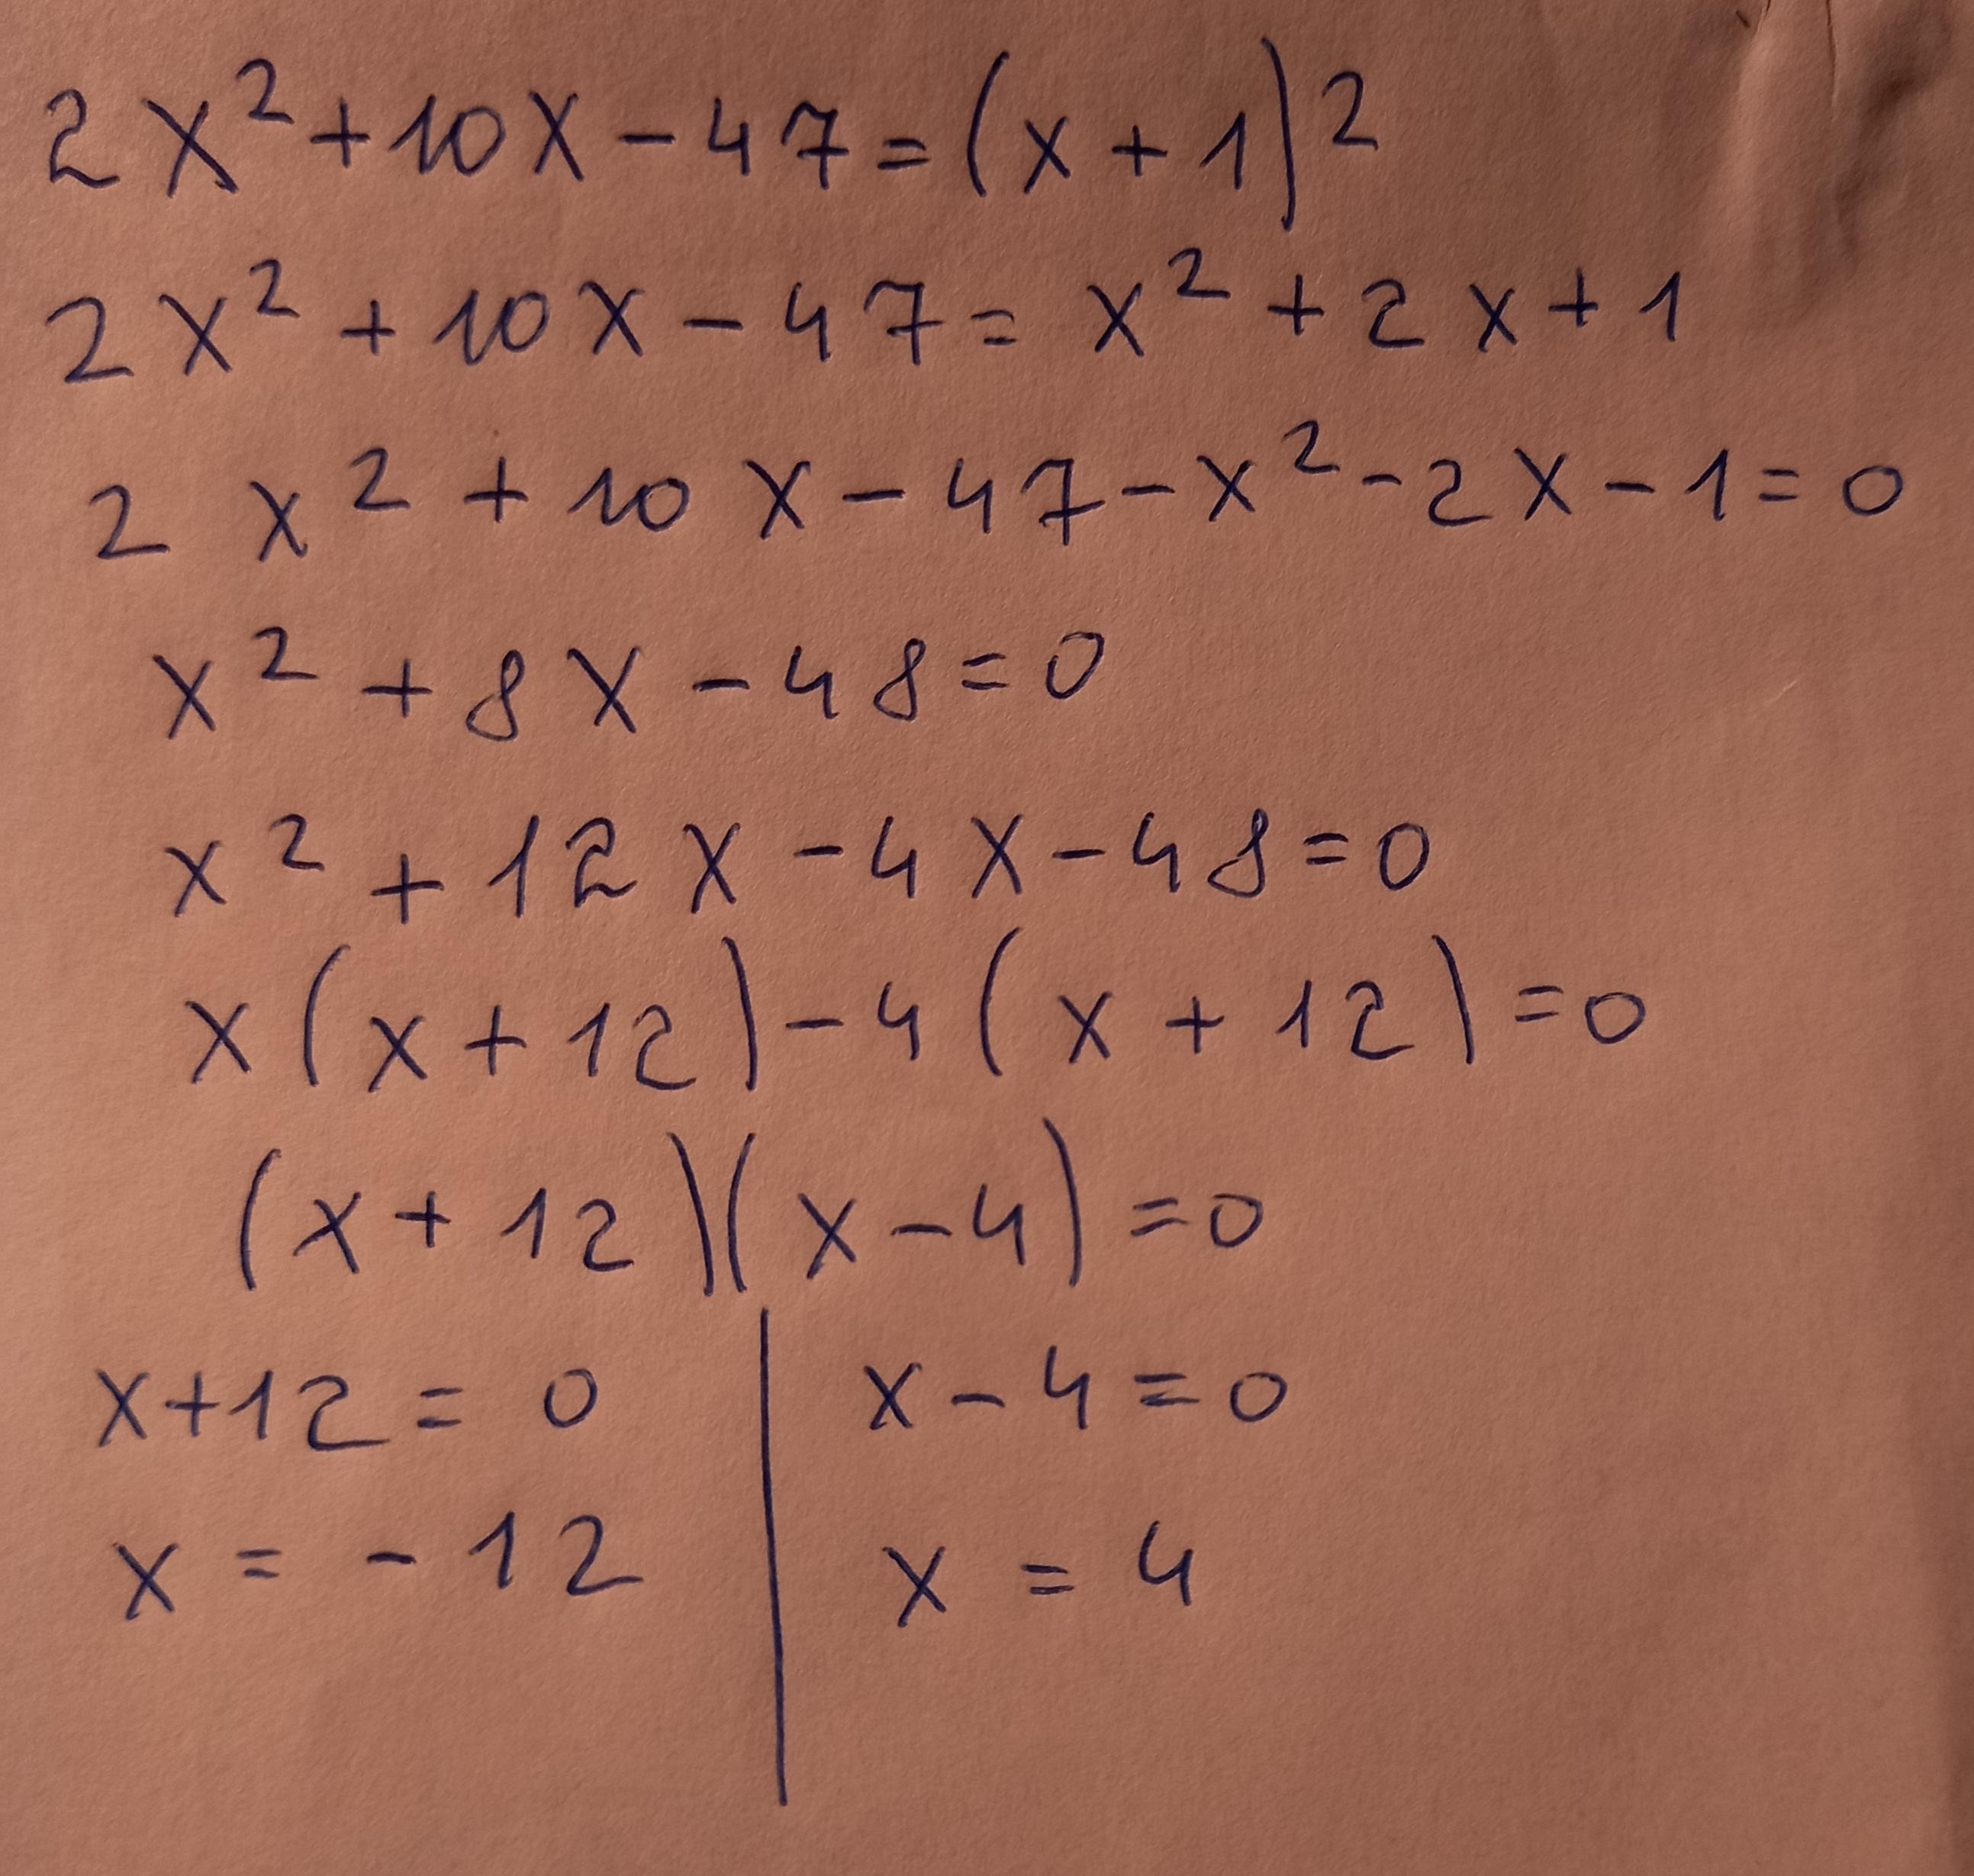 2x²+10x-47=(x+1)²
2x²+10x-47=x²+2x+1
2x²+10x-47-x²-2x-1=0
x²+8x-48=0
x²+12x-4x-48=0
x(x+12)-4(x+12)=0
(x+12)(x-4)=0
x+12=0 | x-4=0
x=-12 | x=4